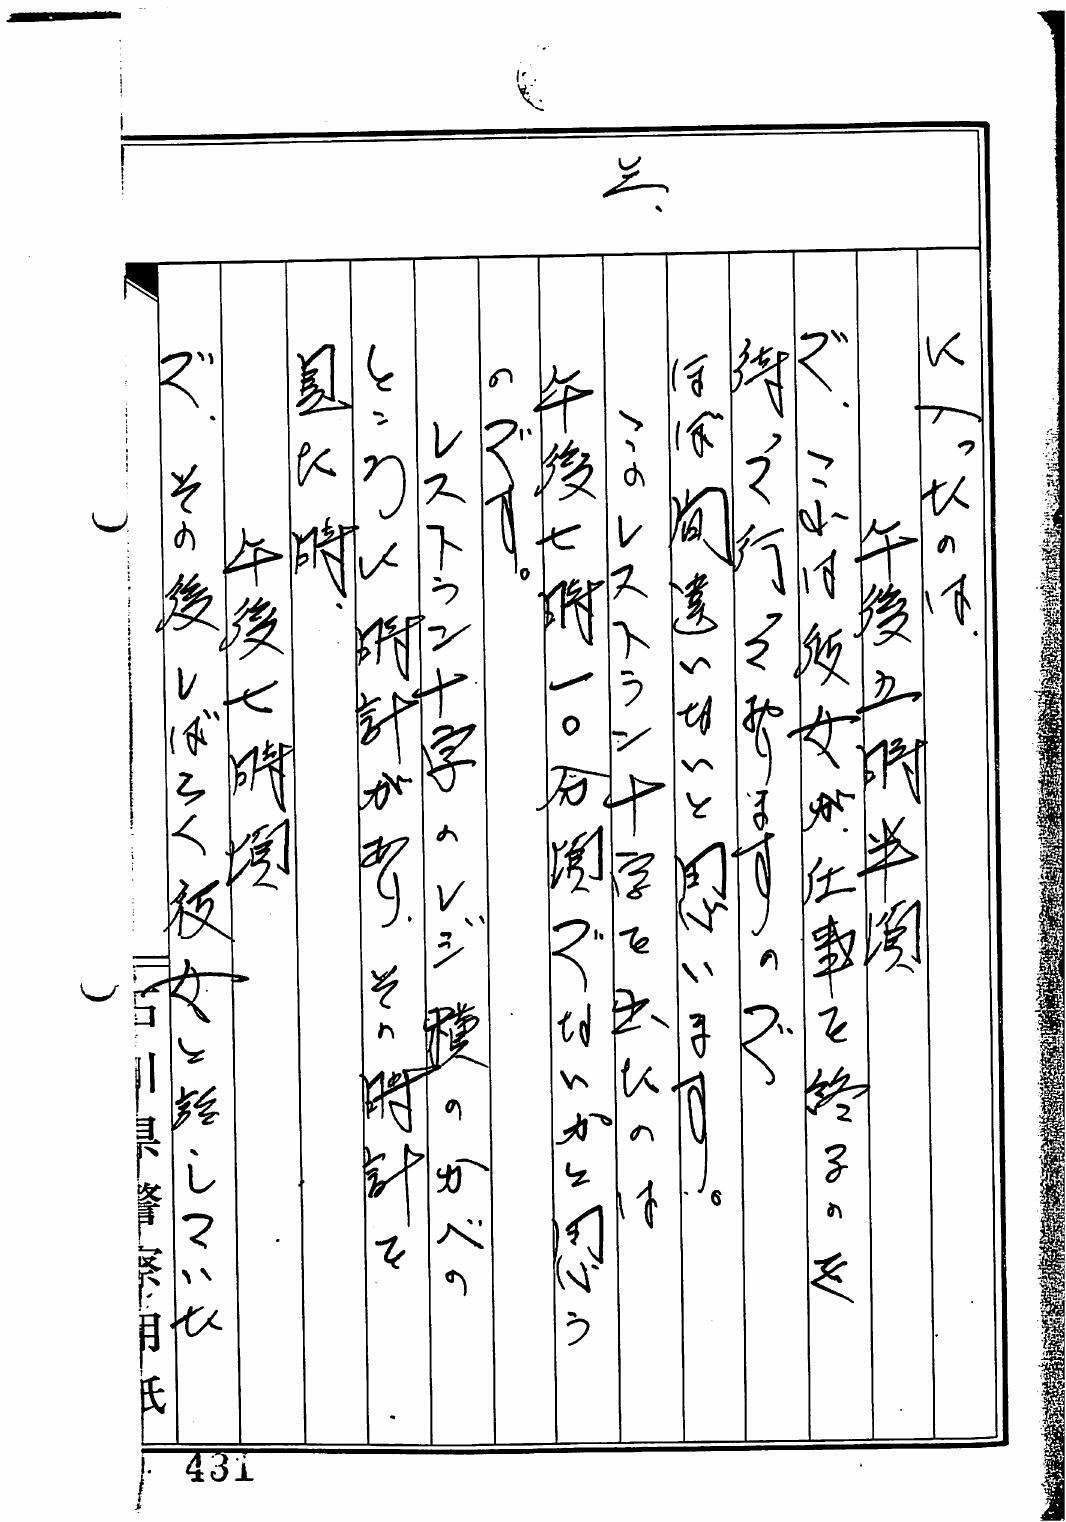 三、
に入ったのは、
午後五時半頃
で、これは彼女が、仕事を終るのを
待って行っておりますので
ほぼ間違いないと思います。
このレストラン十字を出たのは
午後七時一〇分頃でないかと思う
のです。
レストラン十字のレジ横のかべの
ところに時計があり、その時計を
見た時、
午後七時頃
で、その後しばらく彼女と話していた
石川県警察用紙
431